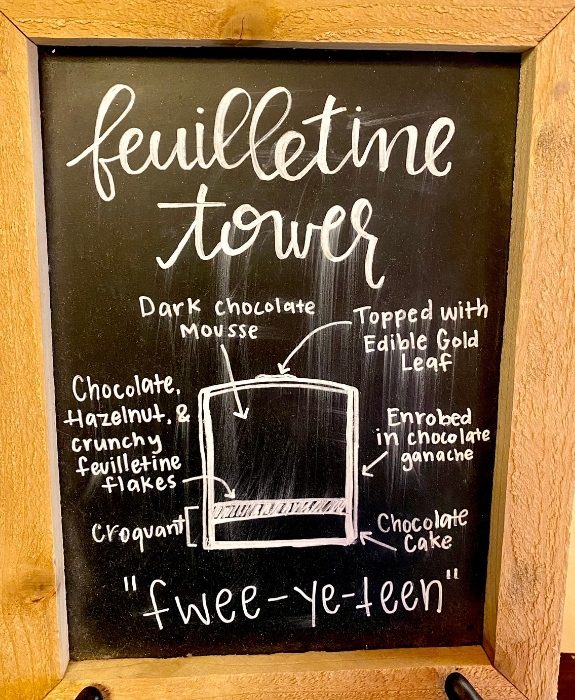 feuilletine
tower
Dark chocolate
Mousse
Topped with
Edible Gold
Leaf
Chocolate,
Hazelnut, &
crunchy
feuilletine
flakes
Enrobed
in chocolate
ganache
Croquant
Chocolate
Cake
"fwee-ye-teen"